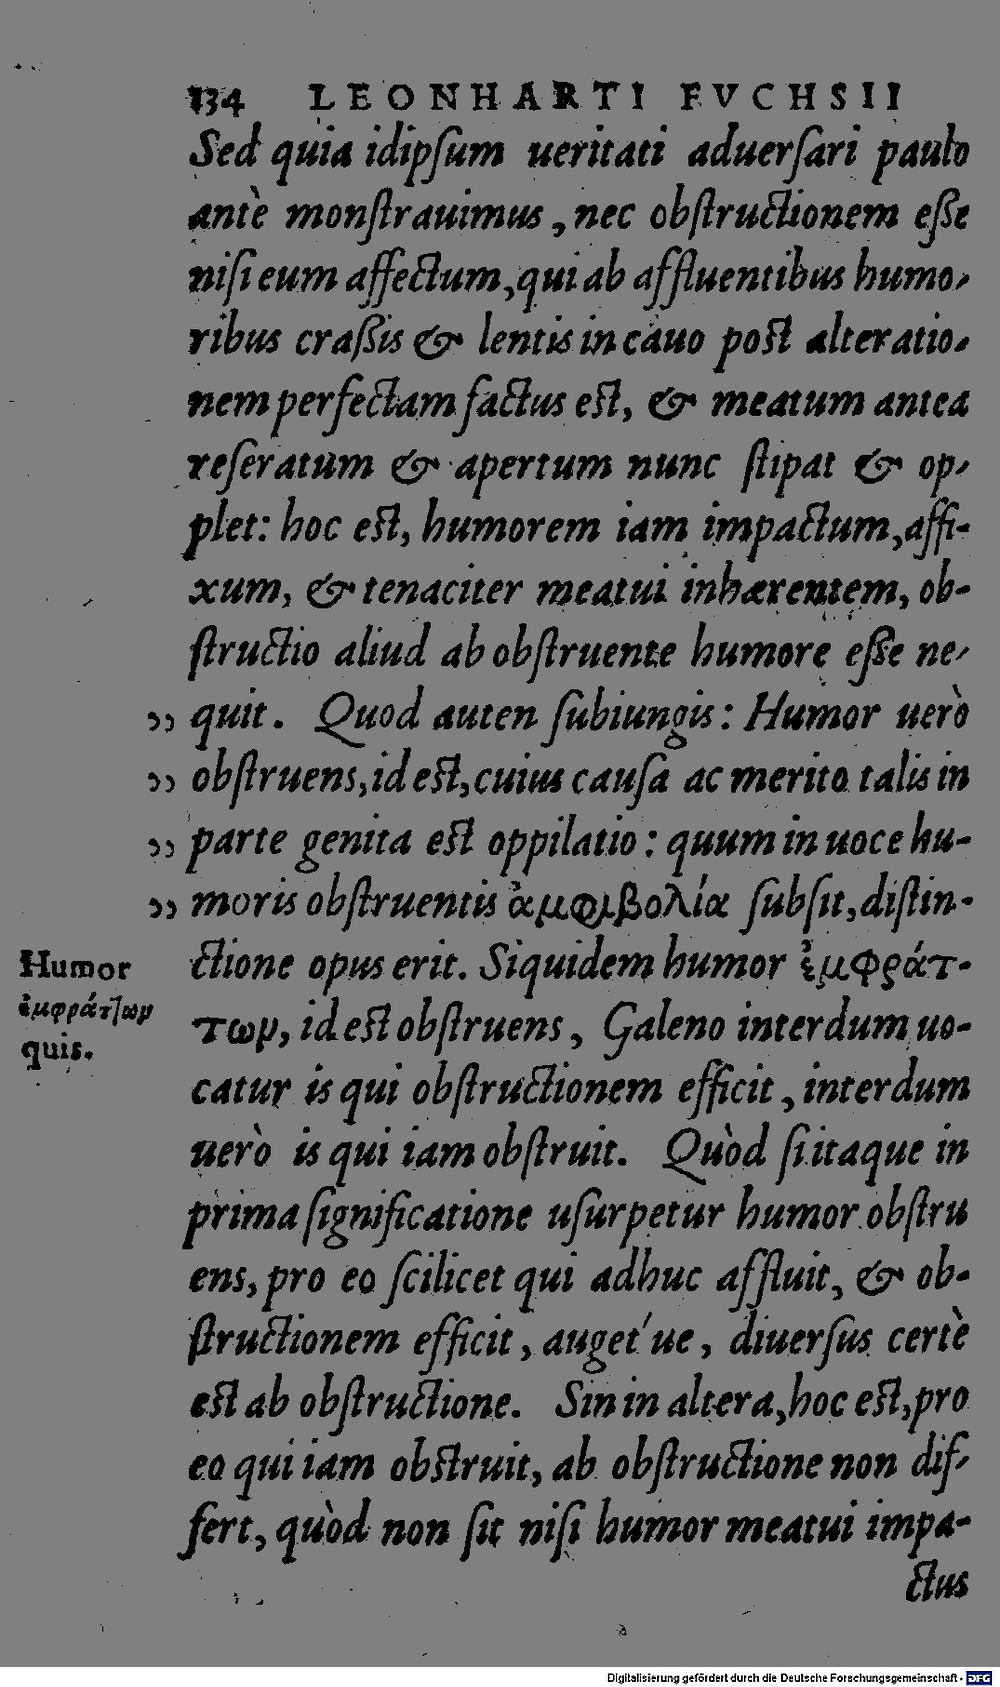 134 LEONHARTI FVCHSII
Sed quia idipſum ueritati aduerſari paulo
antè monſtrauimus, nec obſtructionem eſſe
niſi eum affectum, qui ab affluentibus humo-
ribus craßis & lentis in cauo post alteratio-
nem perfectam factus est, & meatum antea
reſeratum & apertum nunc ſtipat & op-
plet: hoc est, humorem iam impactum, affi-
xum, & tenaciter meatui inhærentem, ob-
ſtructio aliud ab obſtruente humore eſſe ne-
„ quit. Quod auten ſubiungis: Humor uerò
„ obſtruens, id est, cuius cauſa ac merito talis in
„ parte genita est oppilatio: quum in uoce hu-
„ moris obſtruentis ἀμφιβολία ſubſit, diſtin-
ctione opus erit. Siquidem humor ἐμφράτ-
των, id est obſtruens, Galeno interdum uo-
catur is qui obſtructionem efficit, interdum
uerò is qui iam obſtruit. Quòd ſi itaque in
prima ſignificatione uſurpetur humor obſtru
ens, pro eo ſcilicet qui adhuc affluit, & ob-
ſtructionem efficit, auget'ue, diuerſus certè
est ab obſtructione. Sin in altera, hoc est, pro
eo qui iam obstruit, ab obſtructione non dif-
fert, quòd non ſit niſi humor meatui impa-
ctus
Humor
ἐμφράττων
quis.
Digitalisierung gefördert durch die Deutsche Forschungsgemeinschaft - DFG